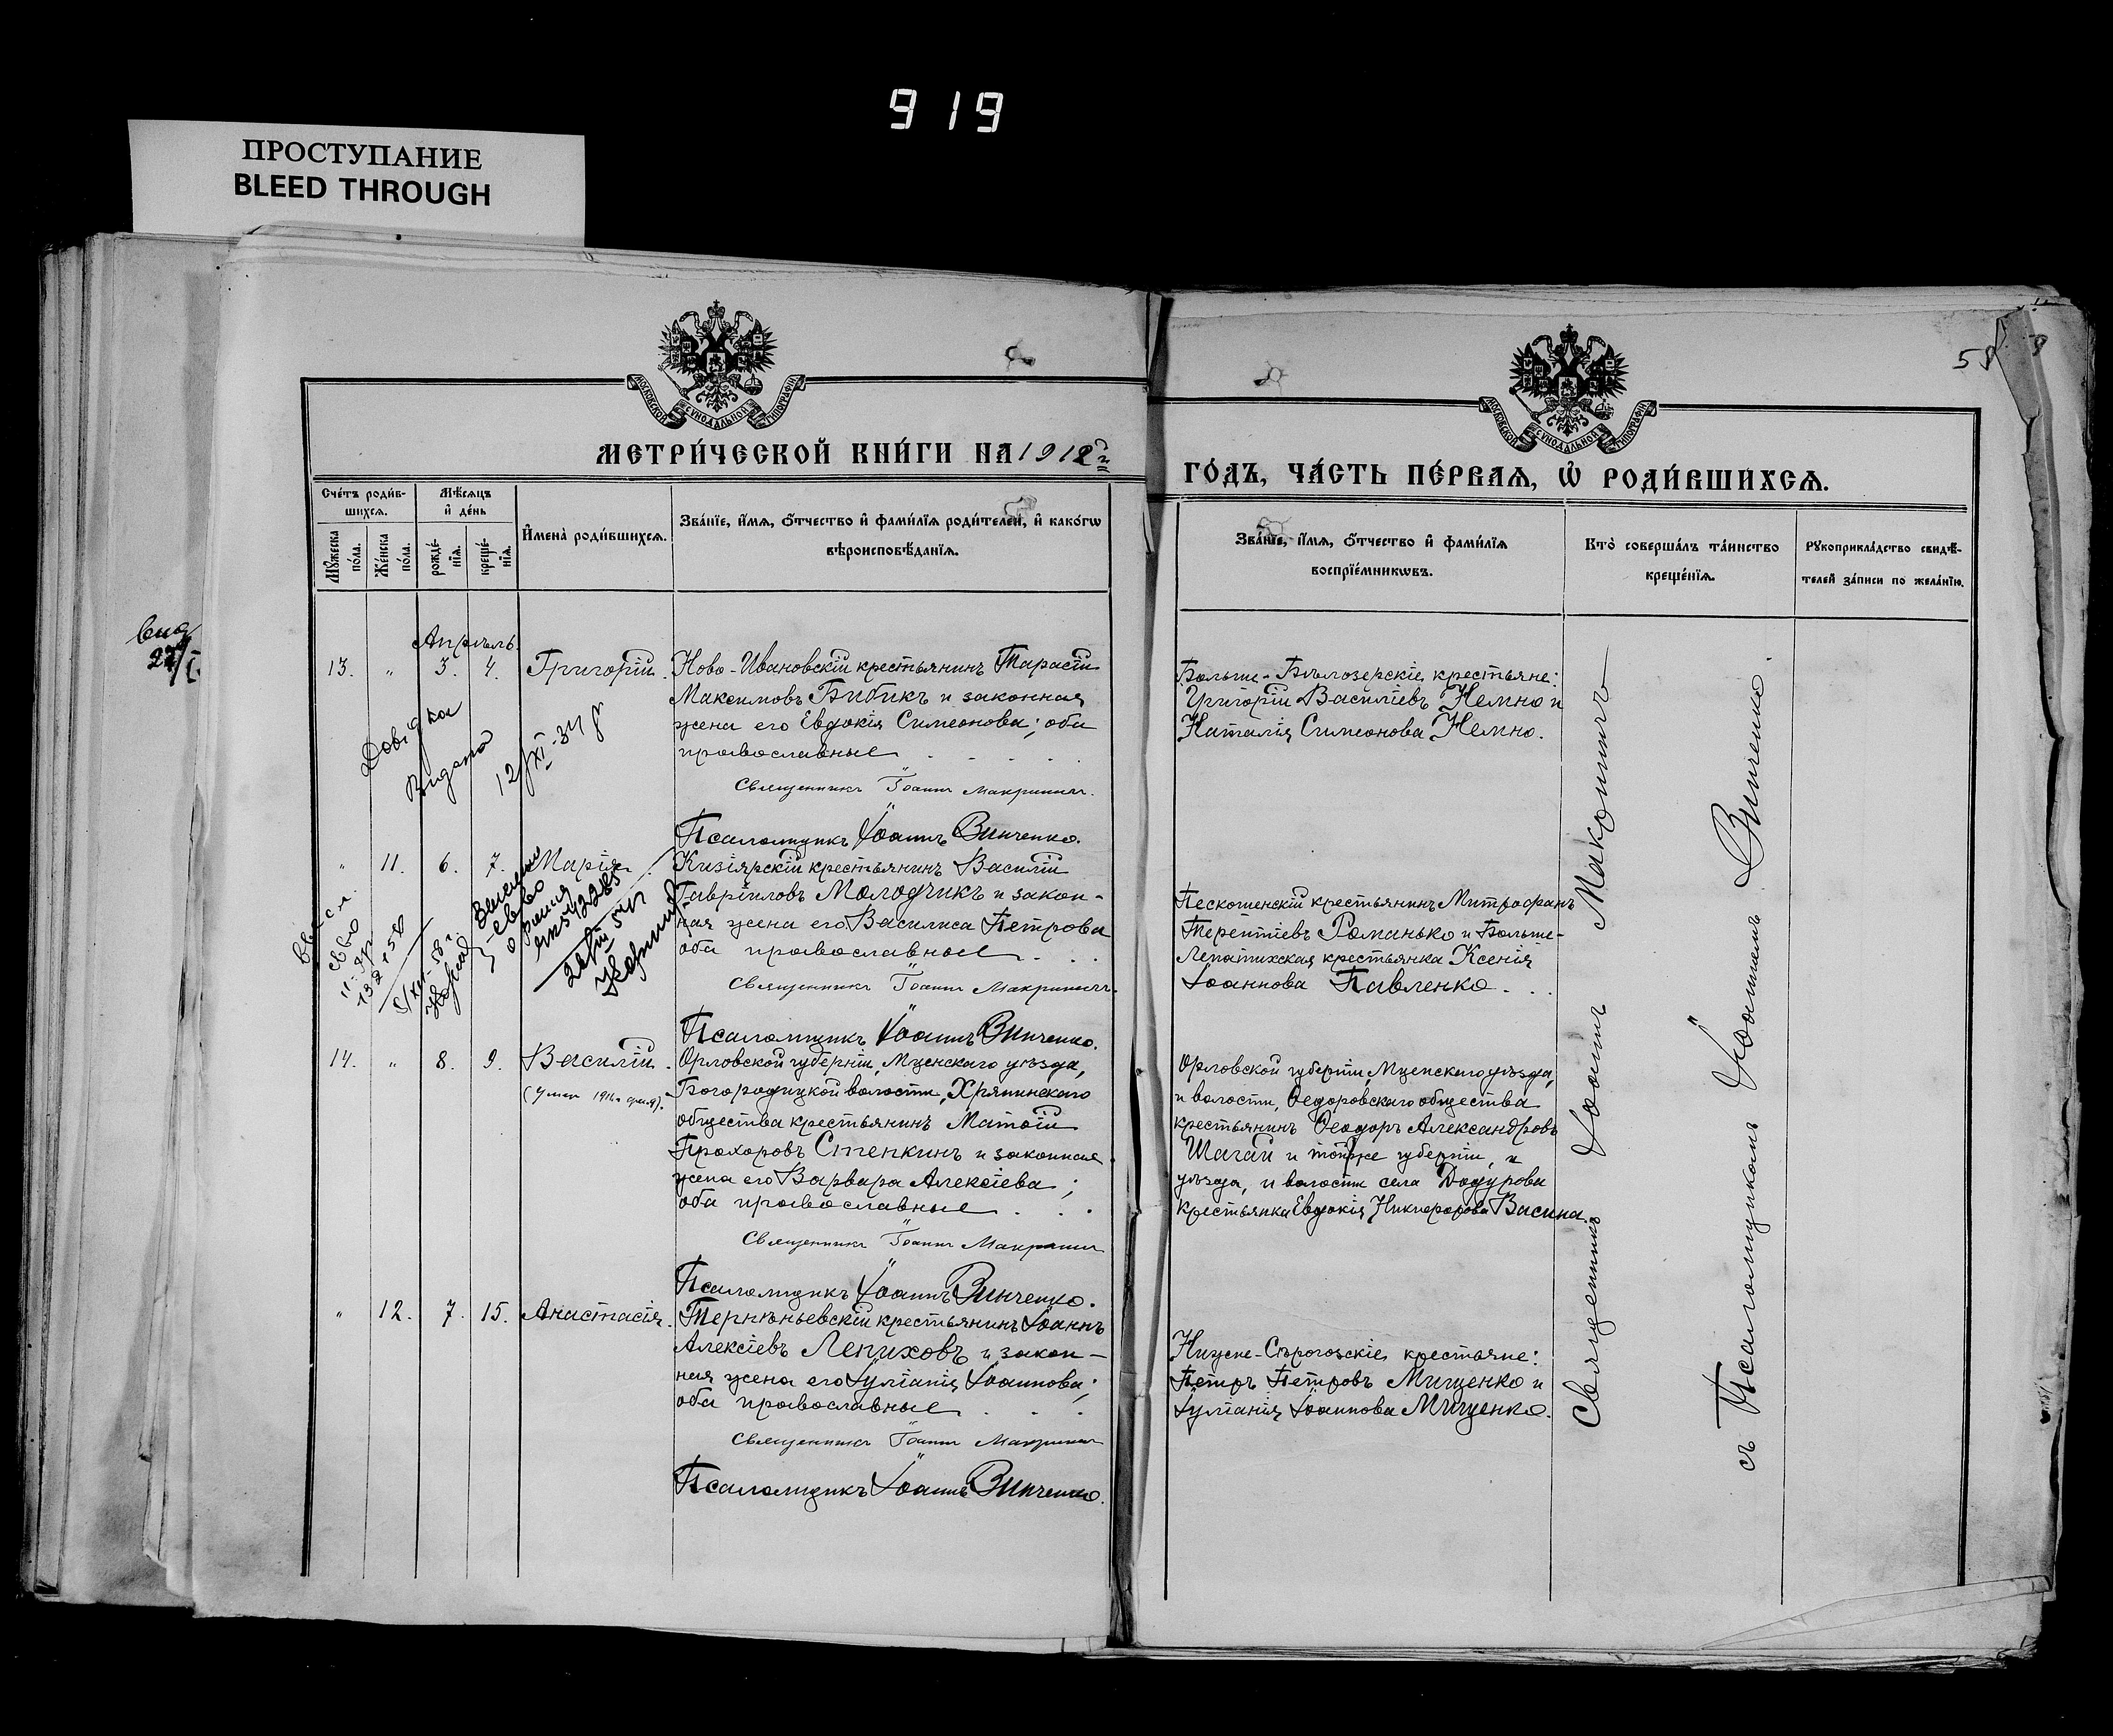 919
ПРОСТУПАНИЕ
BLEED THROUGH
58
МОСКОВСКОЙ СѴНОДАЛЬНОЙ ТИПОГРАФІИ
МОСКОВСКОЙ СѴНОДАЛЬНОЙ ТИПОГРАФІИ
МЕТРИ́ЧЕСКОЙ КНИ́ГИ НА 1912
ГО́ДЪ, ЧА́СТЬ ПЕ́РВАЯ, Ѡ РОДИ́ВШИХСЯ.
Сче́тъ роди́в-
шихся.
Мѣ́сяцъ
и҆ де́нь
Мꙋ́жеска по́ла.
Же́нска по́ла.
рожде́-нїя.
креще́-нїя.
И҆мена̀ роди́вшихся.
Зва́нїе, и҆́мя, ѻ҆́тчество и҆ фами́лїя роди́телей, и҆ како́гѡ
вѣроисповѣ́данїя.
Зва́нїе, и҆́мя, ѻ҆́тчество и҆ фами́лїя
воспрїе́мникѡвъ.
Кто̀ соверша́лъ та́инство
креще́нїя.
Рꙋкоприкла́дство свидѣ́-
телей за́писи по жела́нїю.
Апрѣль.
13. " 3. 4. Григорій.
Ново-Ивановскій крестьянинъ Тарасій
Максимовъ Бибикъ и законная
жена его Евдокія Симеонова; оба
православные
Священникъ Іоаннъ
Псаломщикъ Іоаннъ Винченко.
Больше-Бѣлозерскіе крестьяне:
Григорій Василіевъ Немно и
Наталія Симеонова Немно.
Довідка
Видана
12/XI-34 р
вид
" 11. 6. 7. Марія.
Кизіярскій крестьянинъ Василій
Гавріиловъ Молодчикъ и закон-
ная жена его Василиса Петрова
оба православные
Священникъ Іоаннъ
Псаломщикъ Іоаннъ Винченко.
Пескошенскій крестьянинъ Митрофанъ
Терентіевъ Романько и Больше-
Лепатихская крестьянка Ксенія
Іоаннова Павленко.
14. " 8. 9. Василій.
Орловской губерніи, Мценскаго уѣзда,
Богородицкой волости, Хряпинскаго
общества крестьянинъ Матѳій
Прохоровъ Степкинъ и законная
жена его Варвара Алексіева;
оба православные
Священникъ Іоаннъ
Псаломщикъ Іоаннъ Винченко.
Орловской губерніи, Мценскаго уѣзда,
и волости, Ѳедоровскаго общества
крестьянинъ Ѳеодоръ Александровъ
Шагай и тойже губерніи, и
уѣзда, и волости села Додурова
крестьянка Евдокія Никифорова Васина.
" 12. 7. 15. Анастасія.
крестьянинъ Іоаннъ
Алексіевъ Лепиховъ и закон-
ная жена его Іуліанія Іоаннова;
оба православные
Священникъ Іоаннъ
Псаломщикъ Іоаннъ Винченко.
Нижне-Сѣрогозскіе крестьяне:
Петръ Петровъ Мищенко и
Іуліанія Іоаннова Мищенко.
Священникъ Іоаннъ
съ Псаломщикомъ Іоанномъ Винченко.